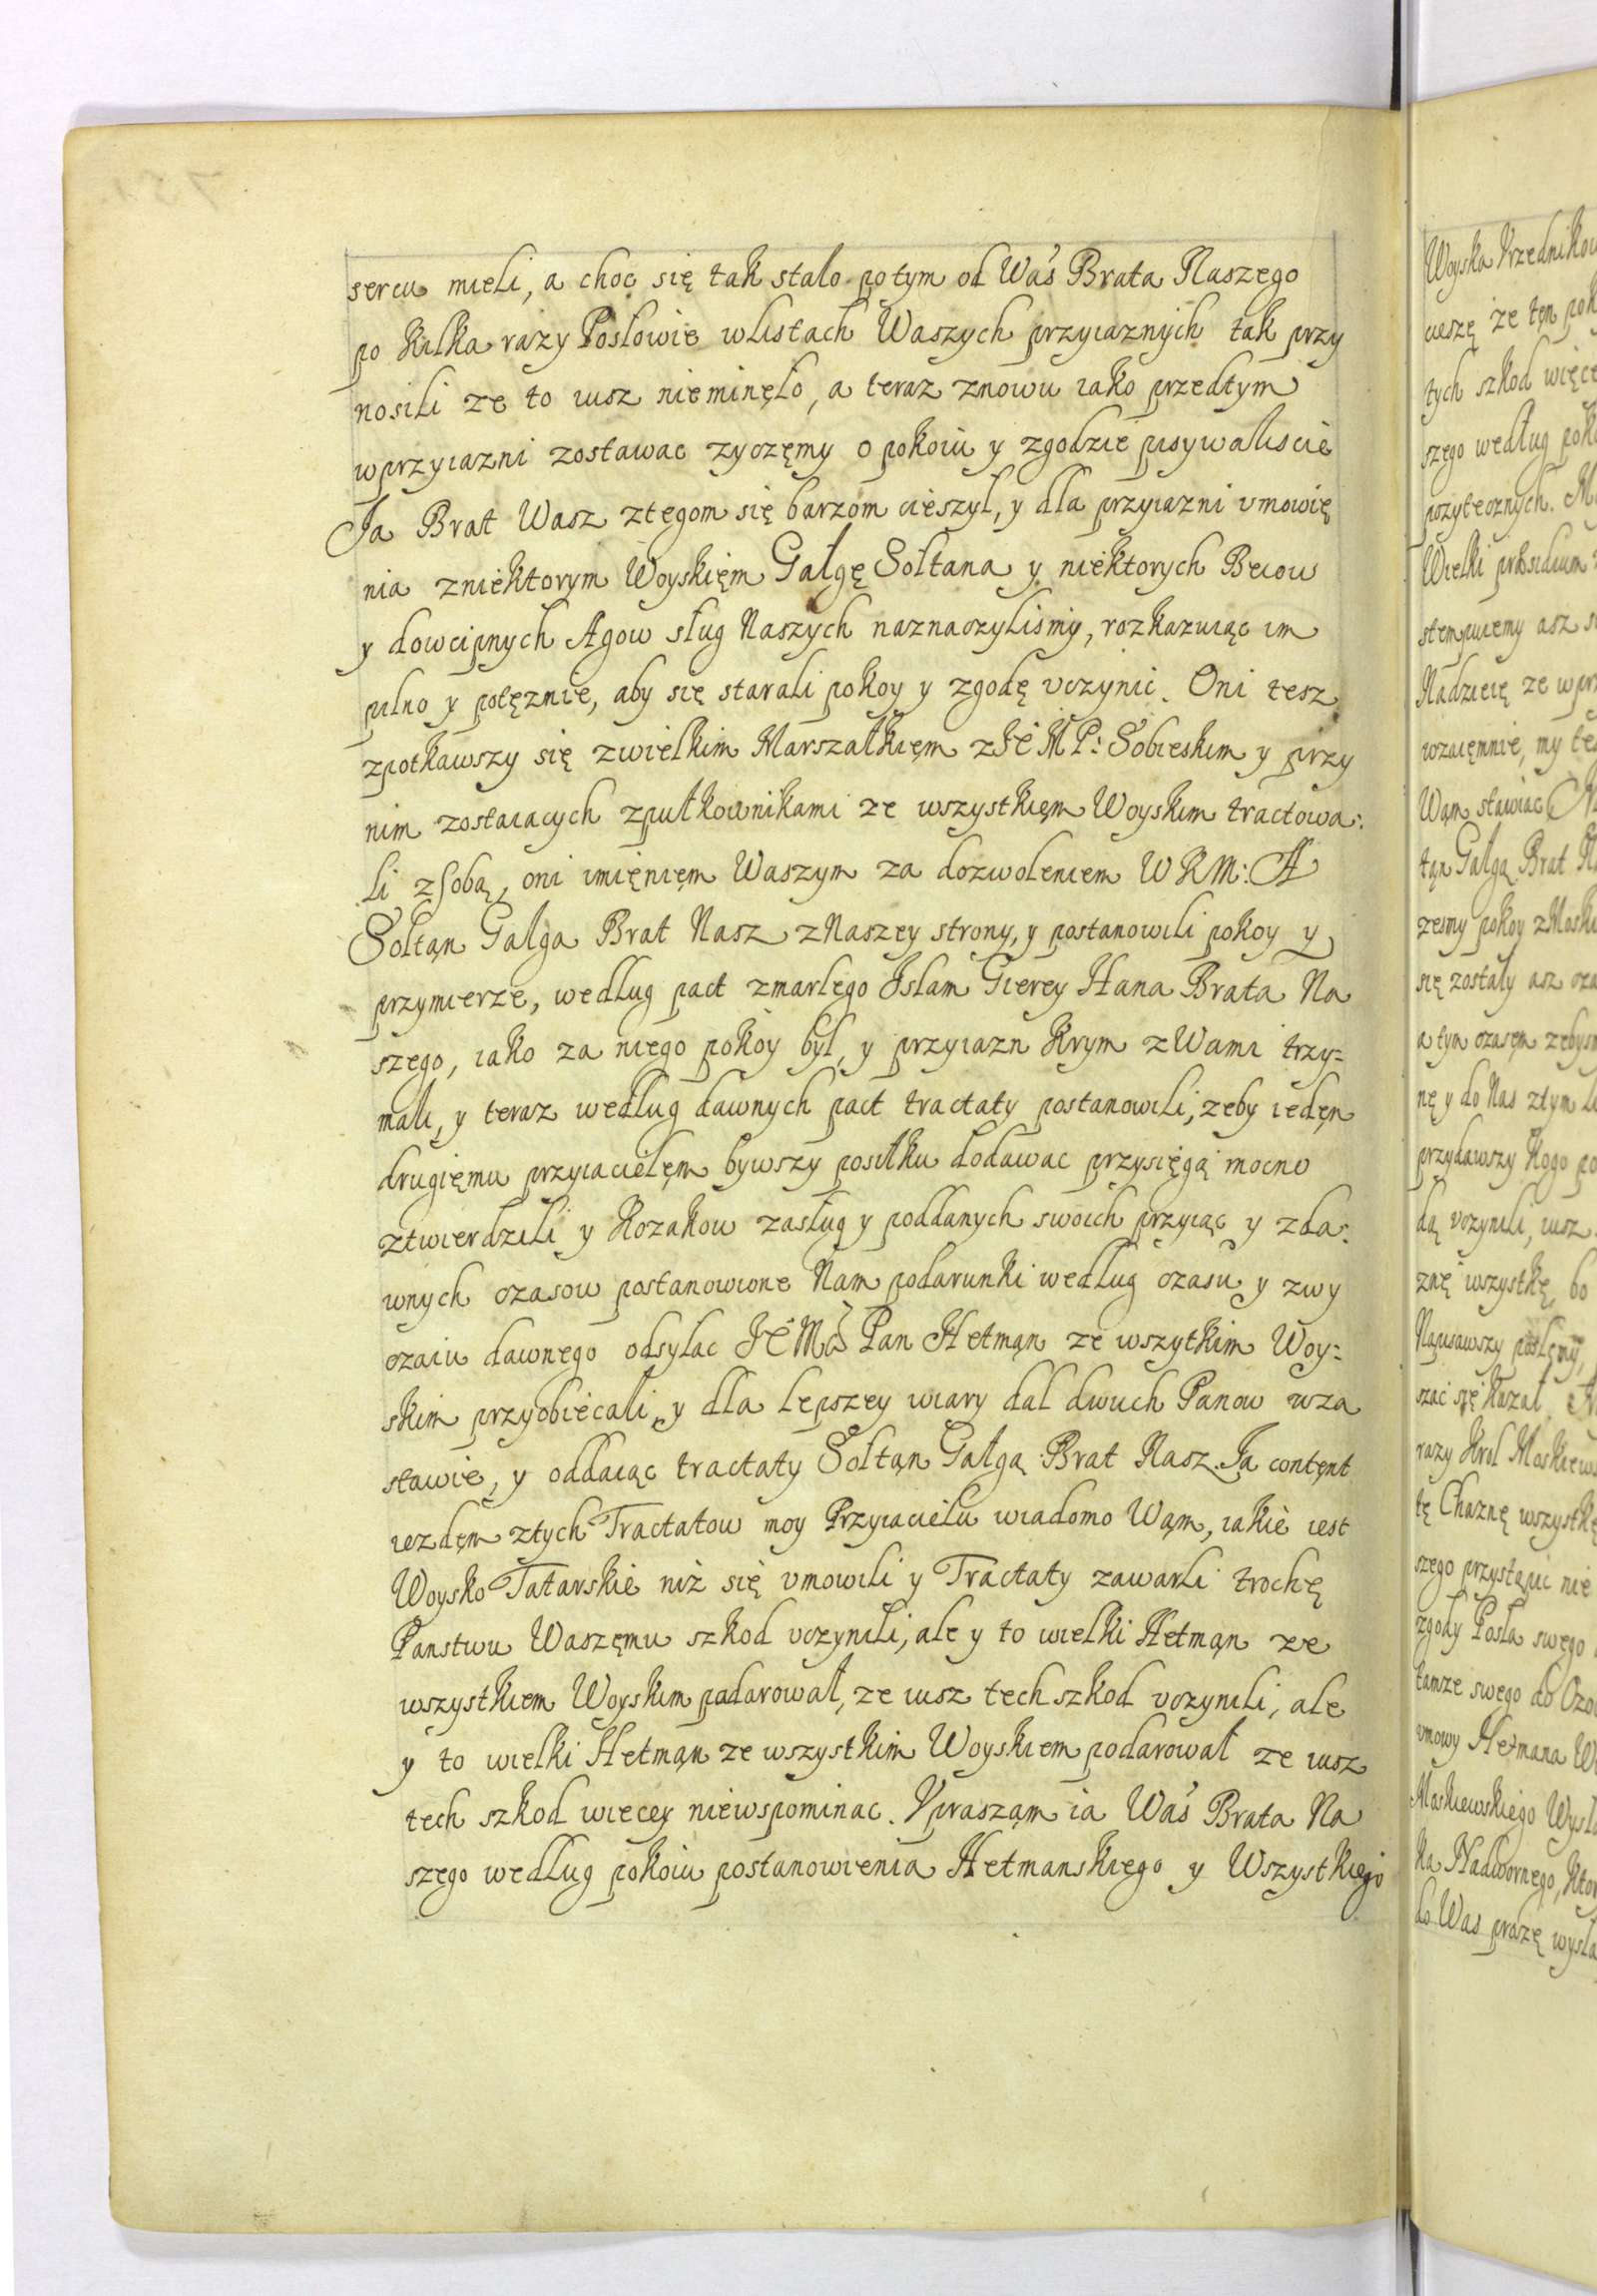 sercu mieli, a choc się tak stalo potym od Waś Brata Naszego
po kilka razy Poslowie wlistach Waszych przyiaznych tak przy
nosili ze to iusz nieminęlo, a teraz znowu iako przedtym
wprzyiazni zostawac zyczęmy o pokoiu y zgodzie pisywaliscie
Ja Brat Wasz ztegom się barzom cieszyl, y dla przyiazni vmowię
nia zniektorym Woyskięm Gałgę Sołtana y niektorych Beiow
y dowcipnych Agow sług Naszych naznaczyliśmy, rozkazuiąc im
pilno y potęznie, aby się starali pokoy y zgodę vczynic. Oni tesz
zpotkawszy się zwielkim Marszałkięm z JE M P: Sobieskim y przy
nim zostaiacych zpułkownikami ze wszystkięm Woyskim tractowa:
li zsobą, oni imięnięm Waszym za dozwoleniem W K M: A
Soltąn Galga Brat Nasz zNaszey strony, y postanowili pokoy y
przymierze, wedlug pact zmarlego Jslam Gierey Hana Brata Na
szego, iako za niego pokoy byl, y przyiazn Krym zWami trzy=
mali, y teraz wedlug dawnych pact tractaty postanowili, zeby iedęn
drugięmu przyiacielęm bywszy posiłku dodawac przysięgą mocno
ztwierdzili y Kozakow zasług y poddanych swoich przyiąc y zda:
wnych czasow postanowione Nam podarunki wedlug czasu y zwy
czaiu dawnego odsylac JE Mść Pan Hetmąn ze wszytkim Woy=
skim przyobiecali, y dla lepszey wiary dal dwuch Panow wza
stawie, y oddaiąc tractaty Soltąn Gałgą Brat Nasz. Ja contęnt
iezdęm ztych Tractatow moy Przyiacielu wiadomo Wąm, iakie iest
Woysko Tatarskie niż się vmowili y Tractaty zawarli trochę
Panstwu Waszęmu szkod vczynili, ale y to wielki Hetmąn ze
wszystkiem Woyskim padarował, ze iusz tech szkod vczynili, ale
y to wielki Hetmąn ze wszystkim Woyskiem podarował ze iusz
tech szkod wiecey niewspominac. Vpraszam ia Waś Brata Na
szego wedlug pokoiu postanowienia Hetmanskiego y Wszystkiego
Woyska
cieszę że tęn
tych szkod
szego według
pozytecznych.
Wielki
stempuiemy asz
Nadzieię ze
wzaięmnie, my
Wąm stawiac
tąn Gałgą Brat
zesmy pokoy
się zostały asz
a tym czasęm
nę y do Nas ztym
przydawszy Kogo
dą vczynili, iusz
znę wszystkę, bo
szac się kazał.
razy Krol
tę Chaznę wszystkę
szego przystąpic nie
zgody Posła swego
tamze swego do
vmowy Hetmana
Moskiewskiego
ka Nadwornego,
do Was proszę